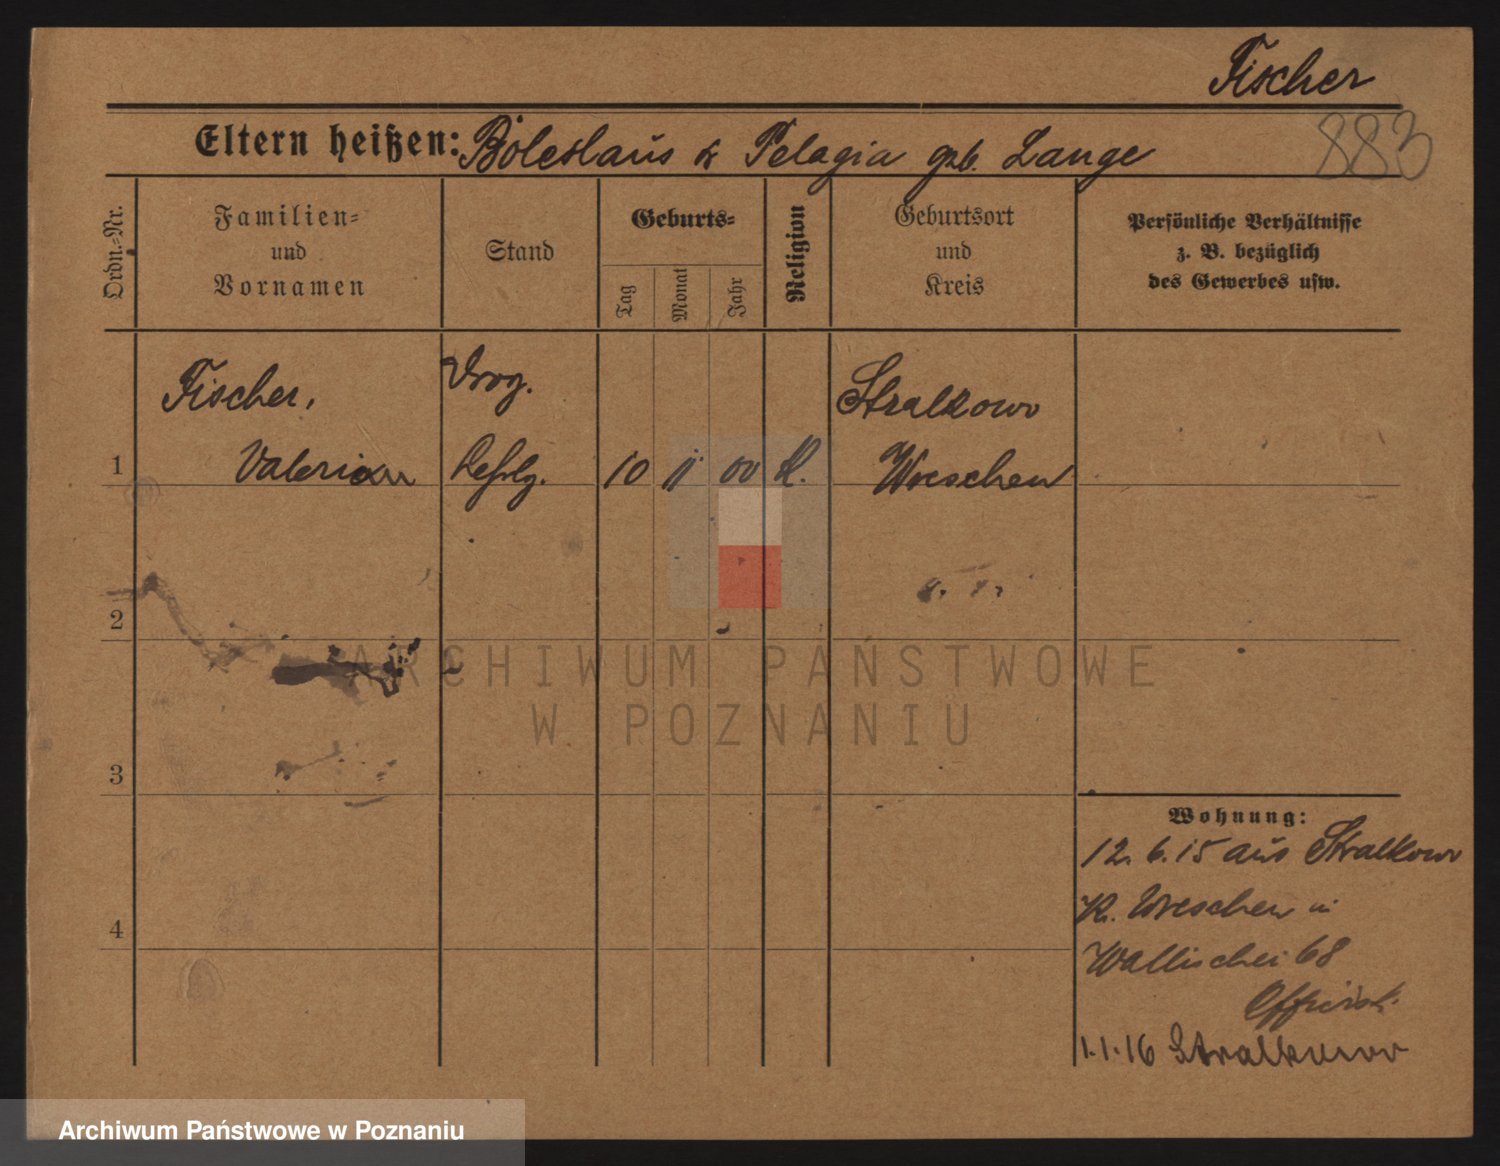 Fischer
883
Eltern heißen: Boleslaus & Pelagia geb. Lange
Ordn.-Nr.
Familien-
und
Vornamen
Stand
Geburts-
Tag
Monat
Jahr
Religion
Geburtsort
und
Kreis
Persönliche Verhältnisse
z. B. bezüglich
des Gewerbes usw.
Fischer,
Drog.
Stralkowo
1
Valerian
Lehrlg.
10
11
00
K.
Wreschen
2
ARCHIWUM PAŃSTWOWE
W POZNANIU
3
Wohnung:
12. 6. 15 aus Stralkowo
K. Wreschen
4
Wallischei 68
1.1.16 Stralkowo
Archiwum Państwowe w Poznaniu